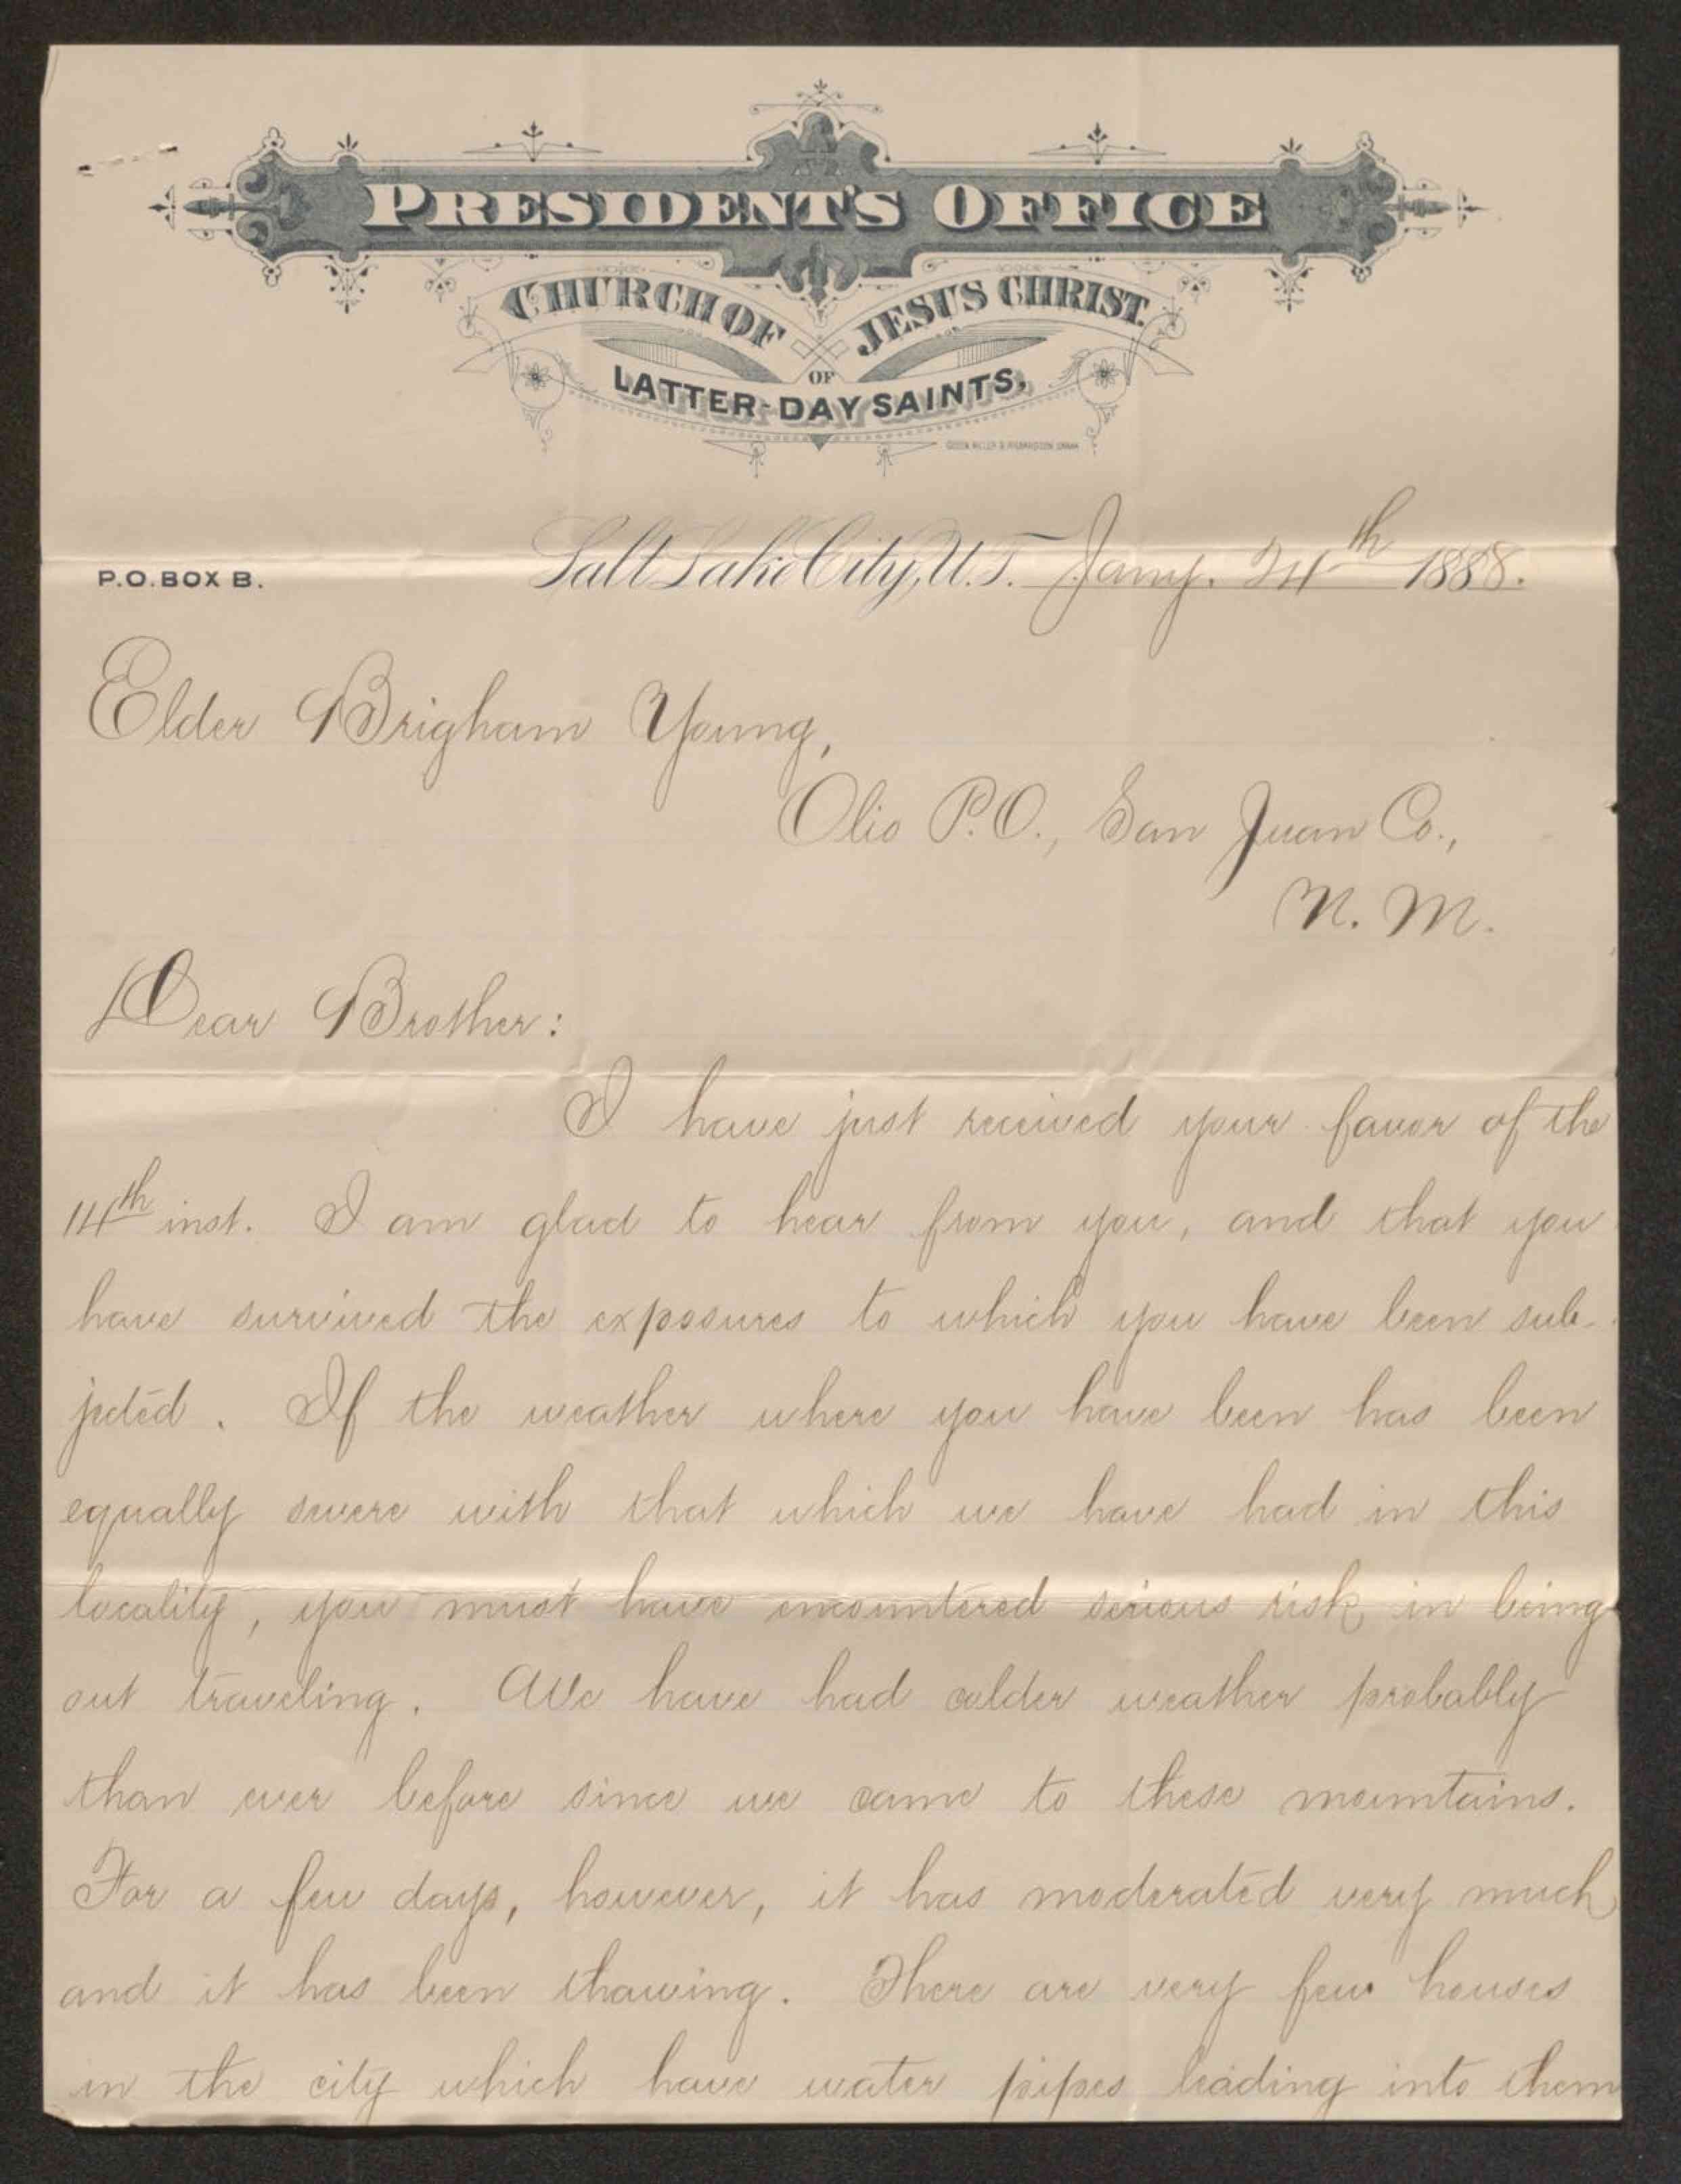 PRESIDENT'S OFFICE
CHURCH OF JESUS CHRIST
OF
LATTER-DAY SAINTS.
P.O. BOX B.
Salt Lake City, U.T. Jany. 24th 1888.
Elder Brigham Young,
Olio P.O., San Juan Co.,
N. M.
Dear Brother:
I have just received your favor of the
14th inst. I am glad to hear from you, and that you
have survived the exposures to which you have been sub-
jected. If the weather where you have been has been
equally severe with that which we have had in this
locality, you must have encountered serious risk in being
out traveling. We have had colder weather probably
than ever before since we came to these mountains.
For a few days, however, it has moderated very much
and it has been thawing. There are very few houses
in the city which have water pipes leading into them